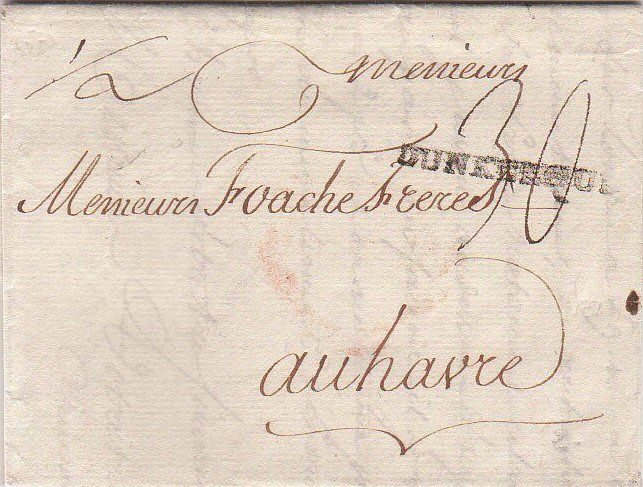 1/2
Messieurs
30
DUNKERQUE
Messieurs Foache Freres
au havre